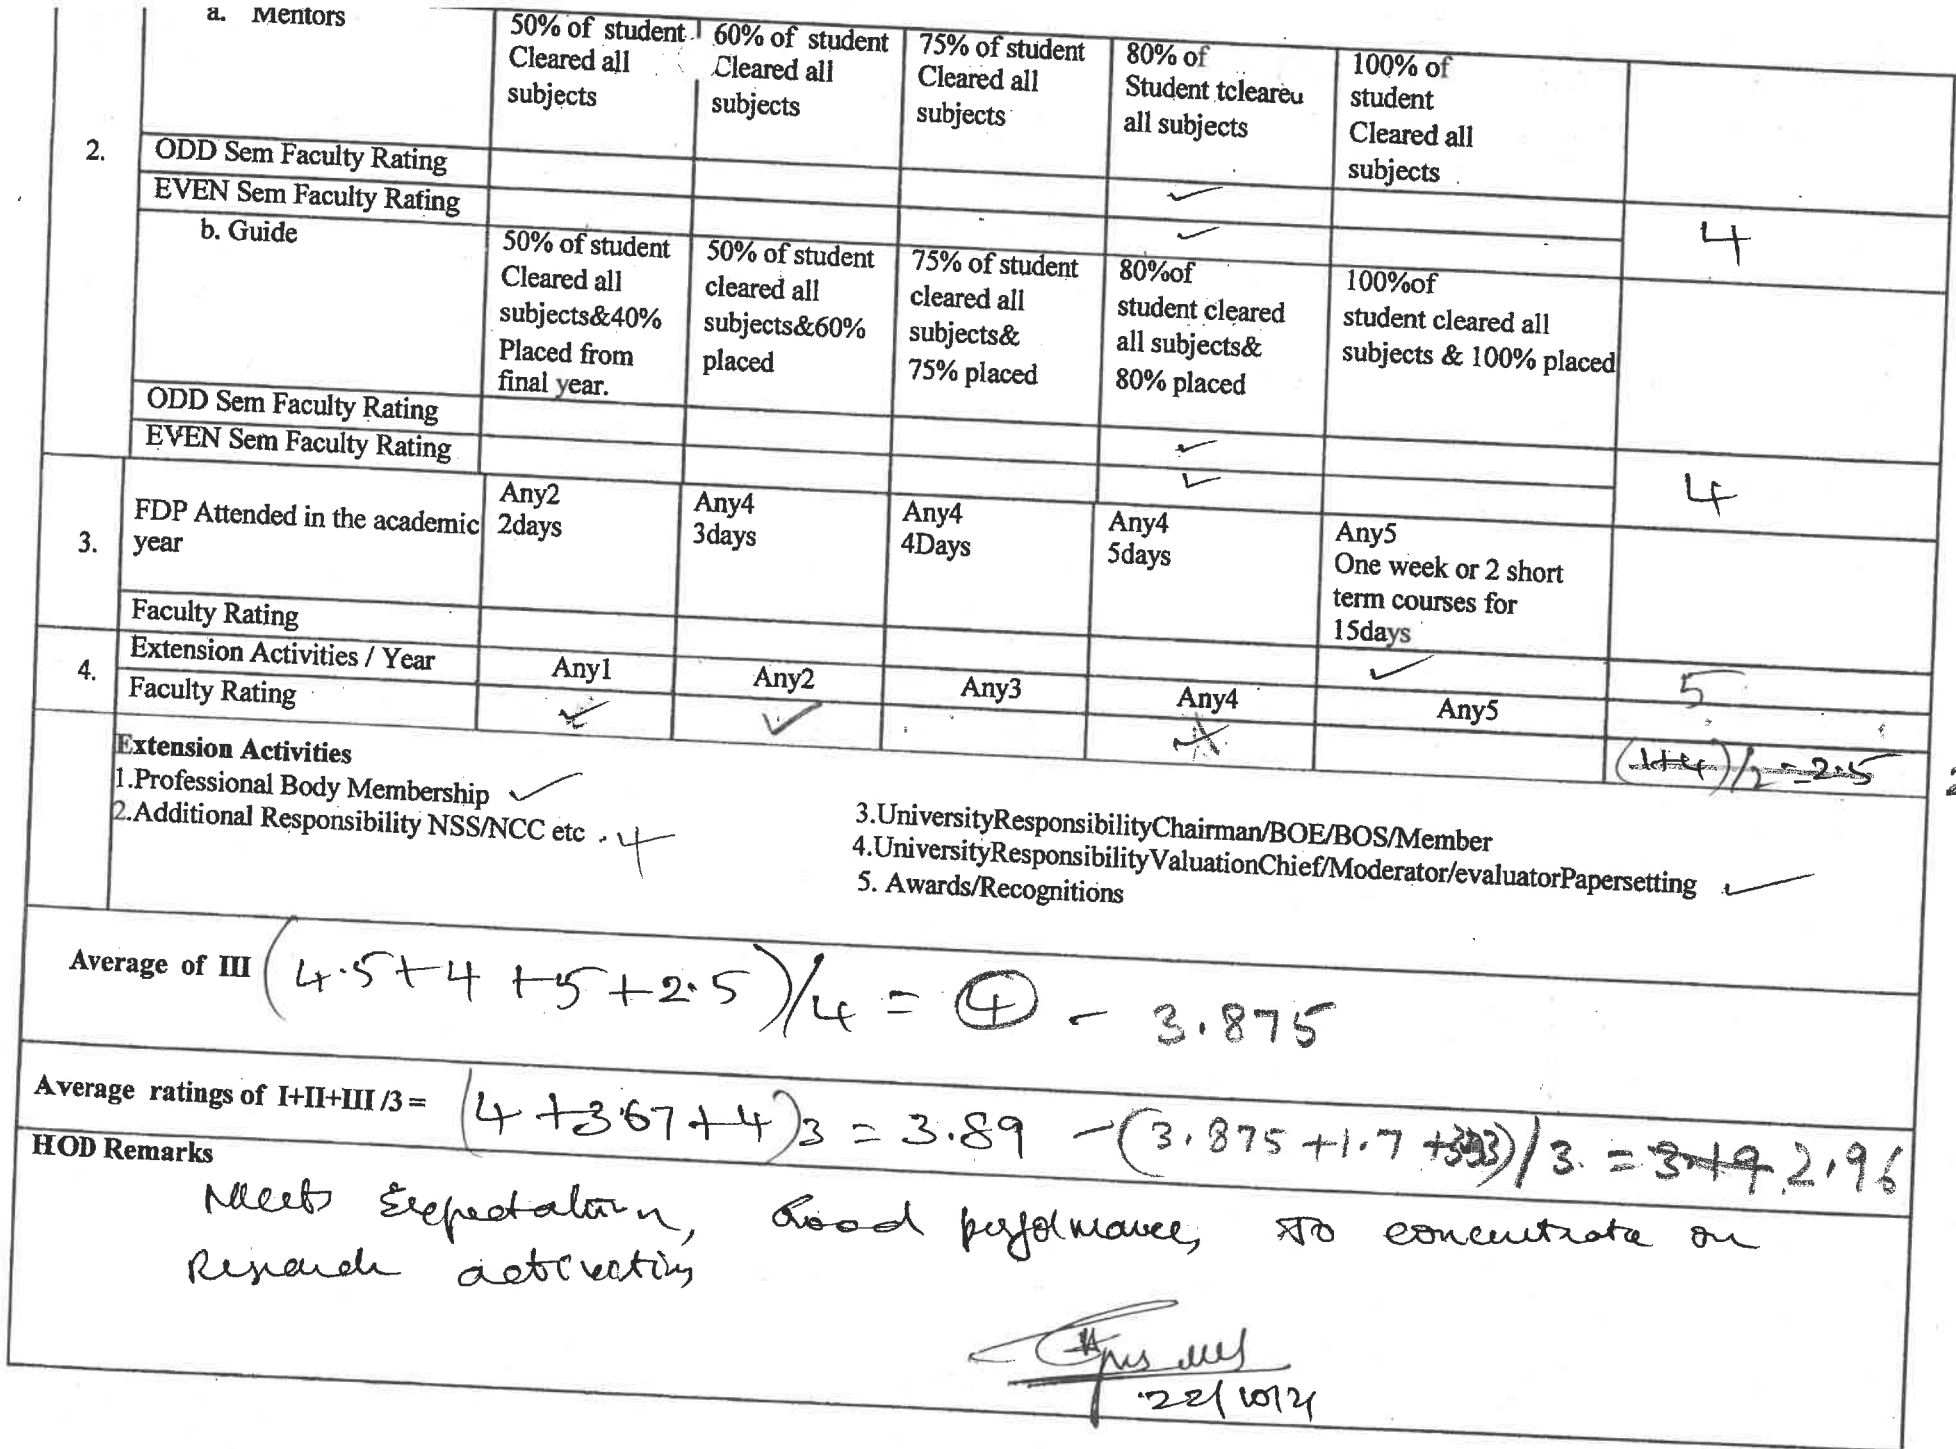 a. Mentors
50% of student Cleared all subjects
60% of student Cleared all subjects
75% of student Cleared all subjects
80% of Student tcleared all subjects
100% of student Cleared all subjects
2.
ODD Sem Faculty Rating ✓
EVEN Sem Faculty Rating ✓ 4
b. Guide
50% of student Cleared all subjects&40% Placed from final year.
50% of student cleared all subjects&60% placed
75% of student cleared all subjects& 75% placed
80%of student cleared all subjects& 80% placed
100%of student cleared all subjects & 100% placed
ODD Sem Faculty Rating ✓
EVEN Sem Faculty Rating ✓ 4
3.
FDP Attended in the academic year
Any2 2days
Any4 3days
Any4 4Days
Any4 5days
Any5 One week or 2 short term courses for 15days
Faculty Rating ✓ 5
4.
Extension Activities / Year Any1 Any2 Any3 Any4 Any5
Faculty Rating ✓ ✓ ✓ (1+4)/2=2.5
Extension Activities
1.Professional Body Membership ✓
2.Additional Responsibility NSS/NCC etc . 4
3.UniversityResponsibilityChairman/BOE/BOS/Member
4.UniversityResponsibilityValuationChief/Moderator/evaluatorPapersetting ✓
5. Awards/Recognitions
Average of III (4.5+4+5+2.5)/4 = 4 - 3.875
Average ratings of I+II+III /3 = (4+3.67+4)3 = 3.89 - (3.875+1.7+ )/3. = 2.96
HOD Remarks
Meets Expectation, Good performance, to concentrate on
Research activities
22/10/21